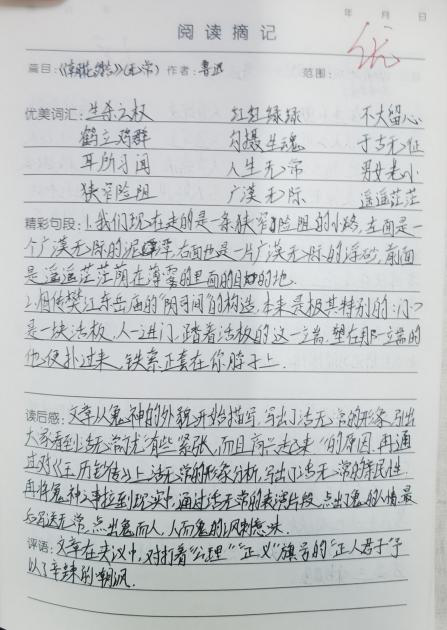 年 月 日
阅读摘记
优
篇目:《朝花夕拾》(无常) 作者:鲁迅 范围:
优美词汇:生杀之权 红红绿绿 不大留心
鹤立鸡群 勾摄生魂 于古无征
耳所习闻 人生无常 男女老小
狭窄险阻 广漠无际 遥遥茫茫
精彩句段:1.我们现在走的是一条狭窄险阻的小路,左面是一
个广漠无际的泥潭,右面也是一片广漠无际的浮砂,前面
是遥遥茫茫荫在薄雾的里面的目的地.
2.但传樊江东岳庙的"阴司间"的构造,本来是极其特别的:门口
是一块活板,人一进门,踏着活板的这一端,塑在那一端的
他便扑过来,铁索正套在你脖子上.
读后感:文章以鬼神的外貌开始描写,写出了活无常的形象,引出
大家看到活无常就"有些紧张,而且高兴起来"的原因.再通
过对《玉历钞传》上活无常的形象分析,写出了活无常的
再将鬼神之事拉到现实中,通过活无常的表演片段,点出了鬼的人情.最
后写送无常,点出鬼而人,人而鬼的讽刺意味.
评语:文章在夹议中,对打着"公理""正义"旗号的"正人君子"予
以了辛辣的嘲讽.